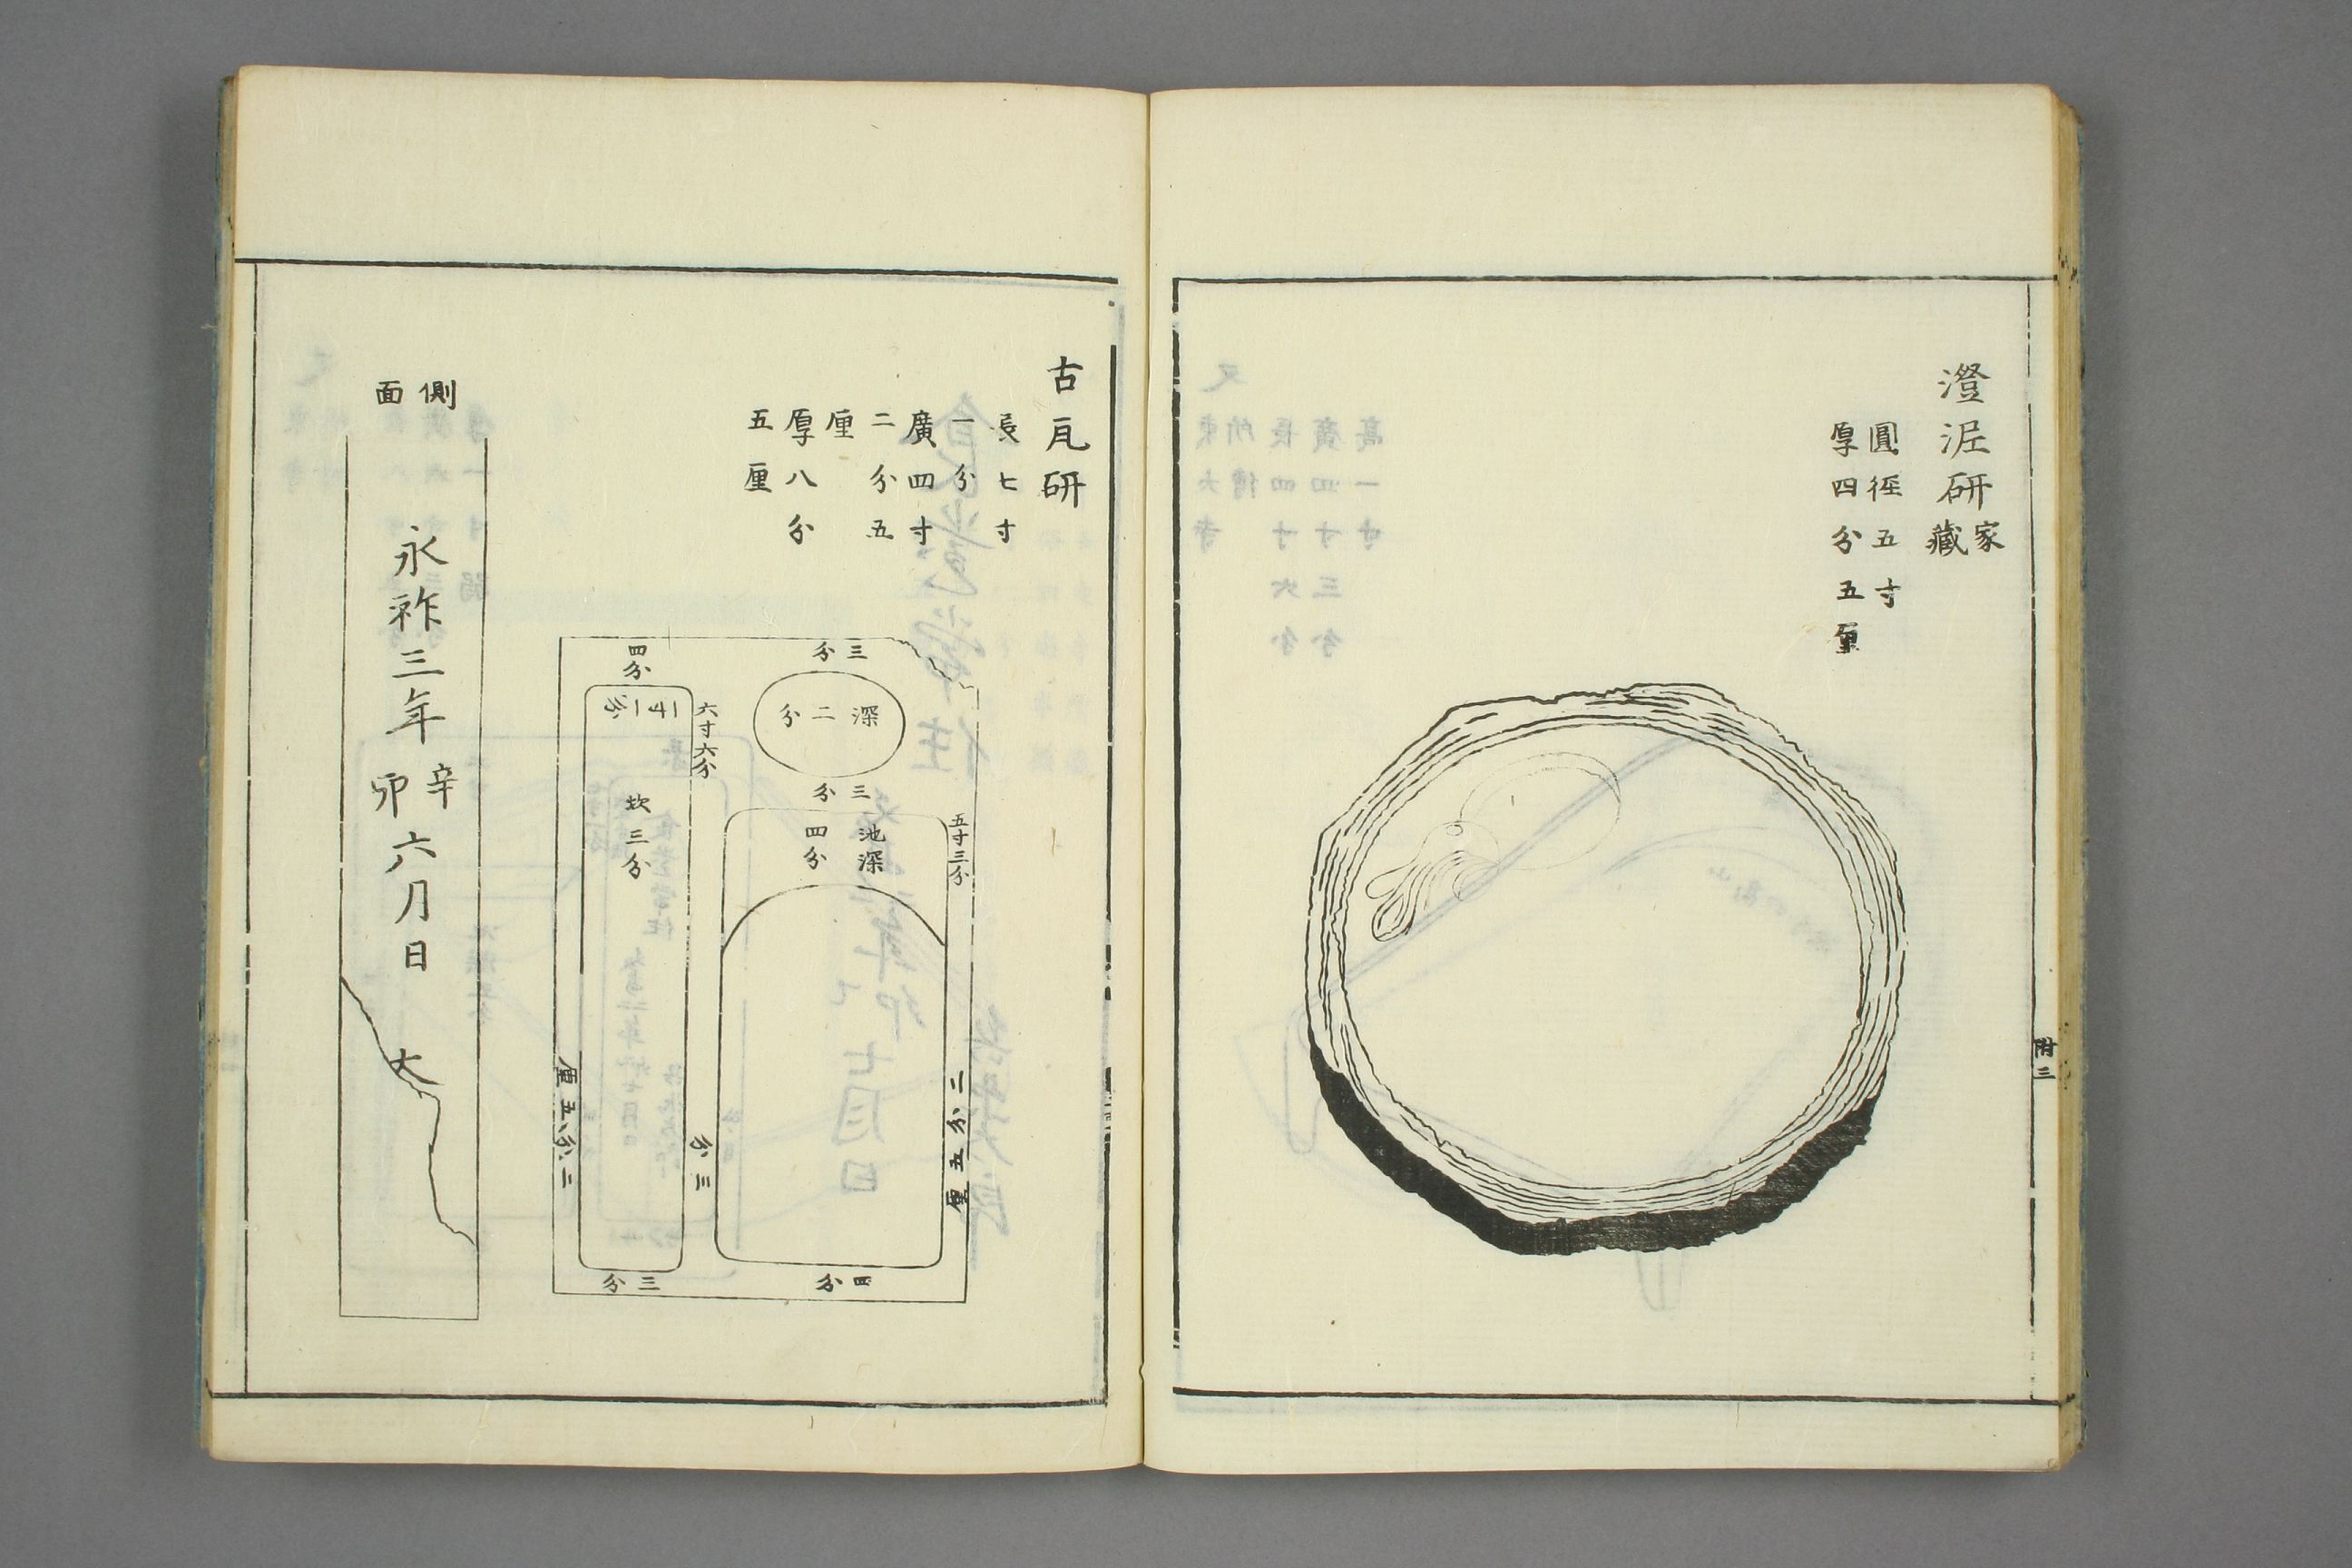 澄泥研家藏
圓徑五寸
厚四分五厘
附三
古瓦研
長七寸
一分
廣四寸
二分五
厘
厚八分
五厘
三分
深二分
三分
池深
四分
五寸三分
二分五厘
四分
四分
六寸六分
坎三分
三分
二分五厘
三分
側面
永祚三年辛卯六月日
大